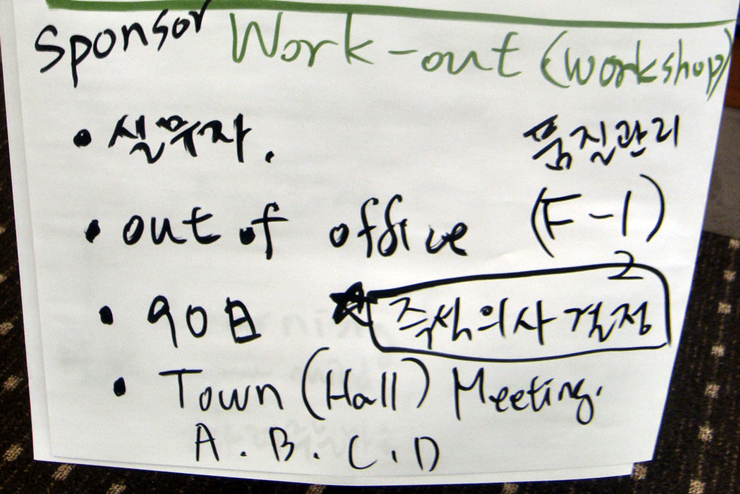 Sponsor Work-out (workshop)
• 실무자. 품질관리
• out of office (F-1)
2
• 90日 ★ 즉석의사결정
• Town (Hall) Meeting.
A. B. C. D